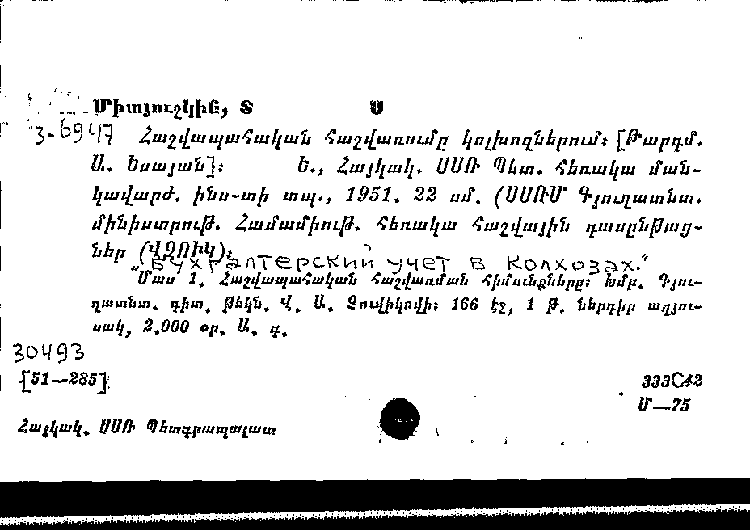 Միտյուշկին, Տ Ս
3-6947 Հաշվապահական հաշվառումը կոլխոզներում: [Թարգմ.
Ա. Եսայան]: Ե., Հայկակ. ՍՍՌ Պետ. հեռակա ման-
կավարժ. ինս-տի տպ., 1951. 22 սմ. (ՍՍՌՄ Գյուղատնտ.
մինիստրութ. Համամիութ. հեռակա հաշվային դասընթաց-
ներ (ՎԶՈՒԿ):
"Бухгалтерский учет в колхозах."
Մաս 1. Հաշվապահական հաշվառման հիմունքները: Խմբ. Գյու-
ղատնտ. գիտ. թեկն. Վ. Ա. Չուվիկովի: 166 էջ, 1 թ. ներդիր աղյու-
սակ, 2.000 օր. Ա. գ.
30493
[51—285]
333C42
Մ—75
Հայկակ. ՍՍՌ Պետգրապալատ